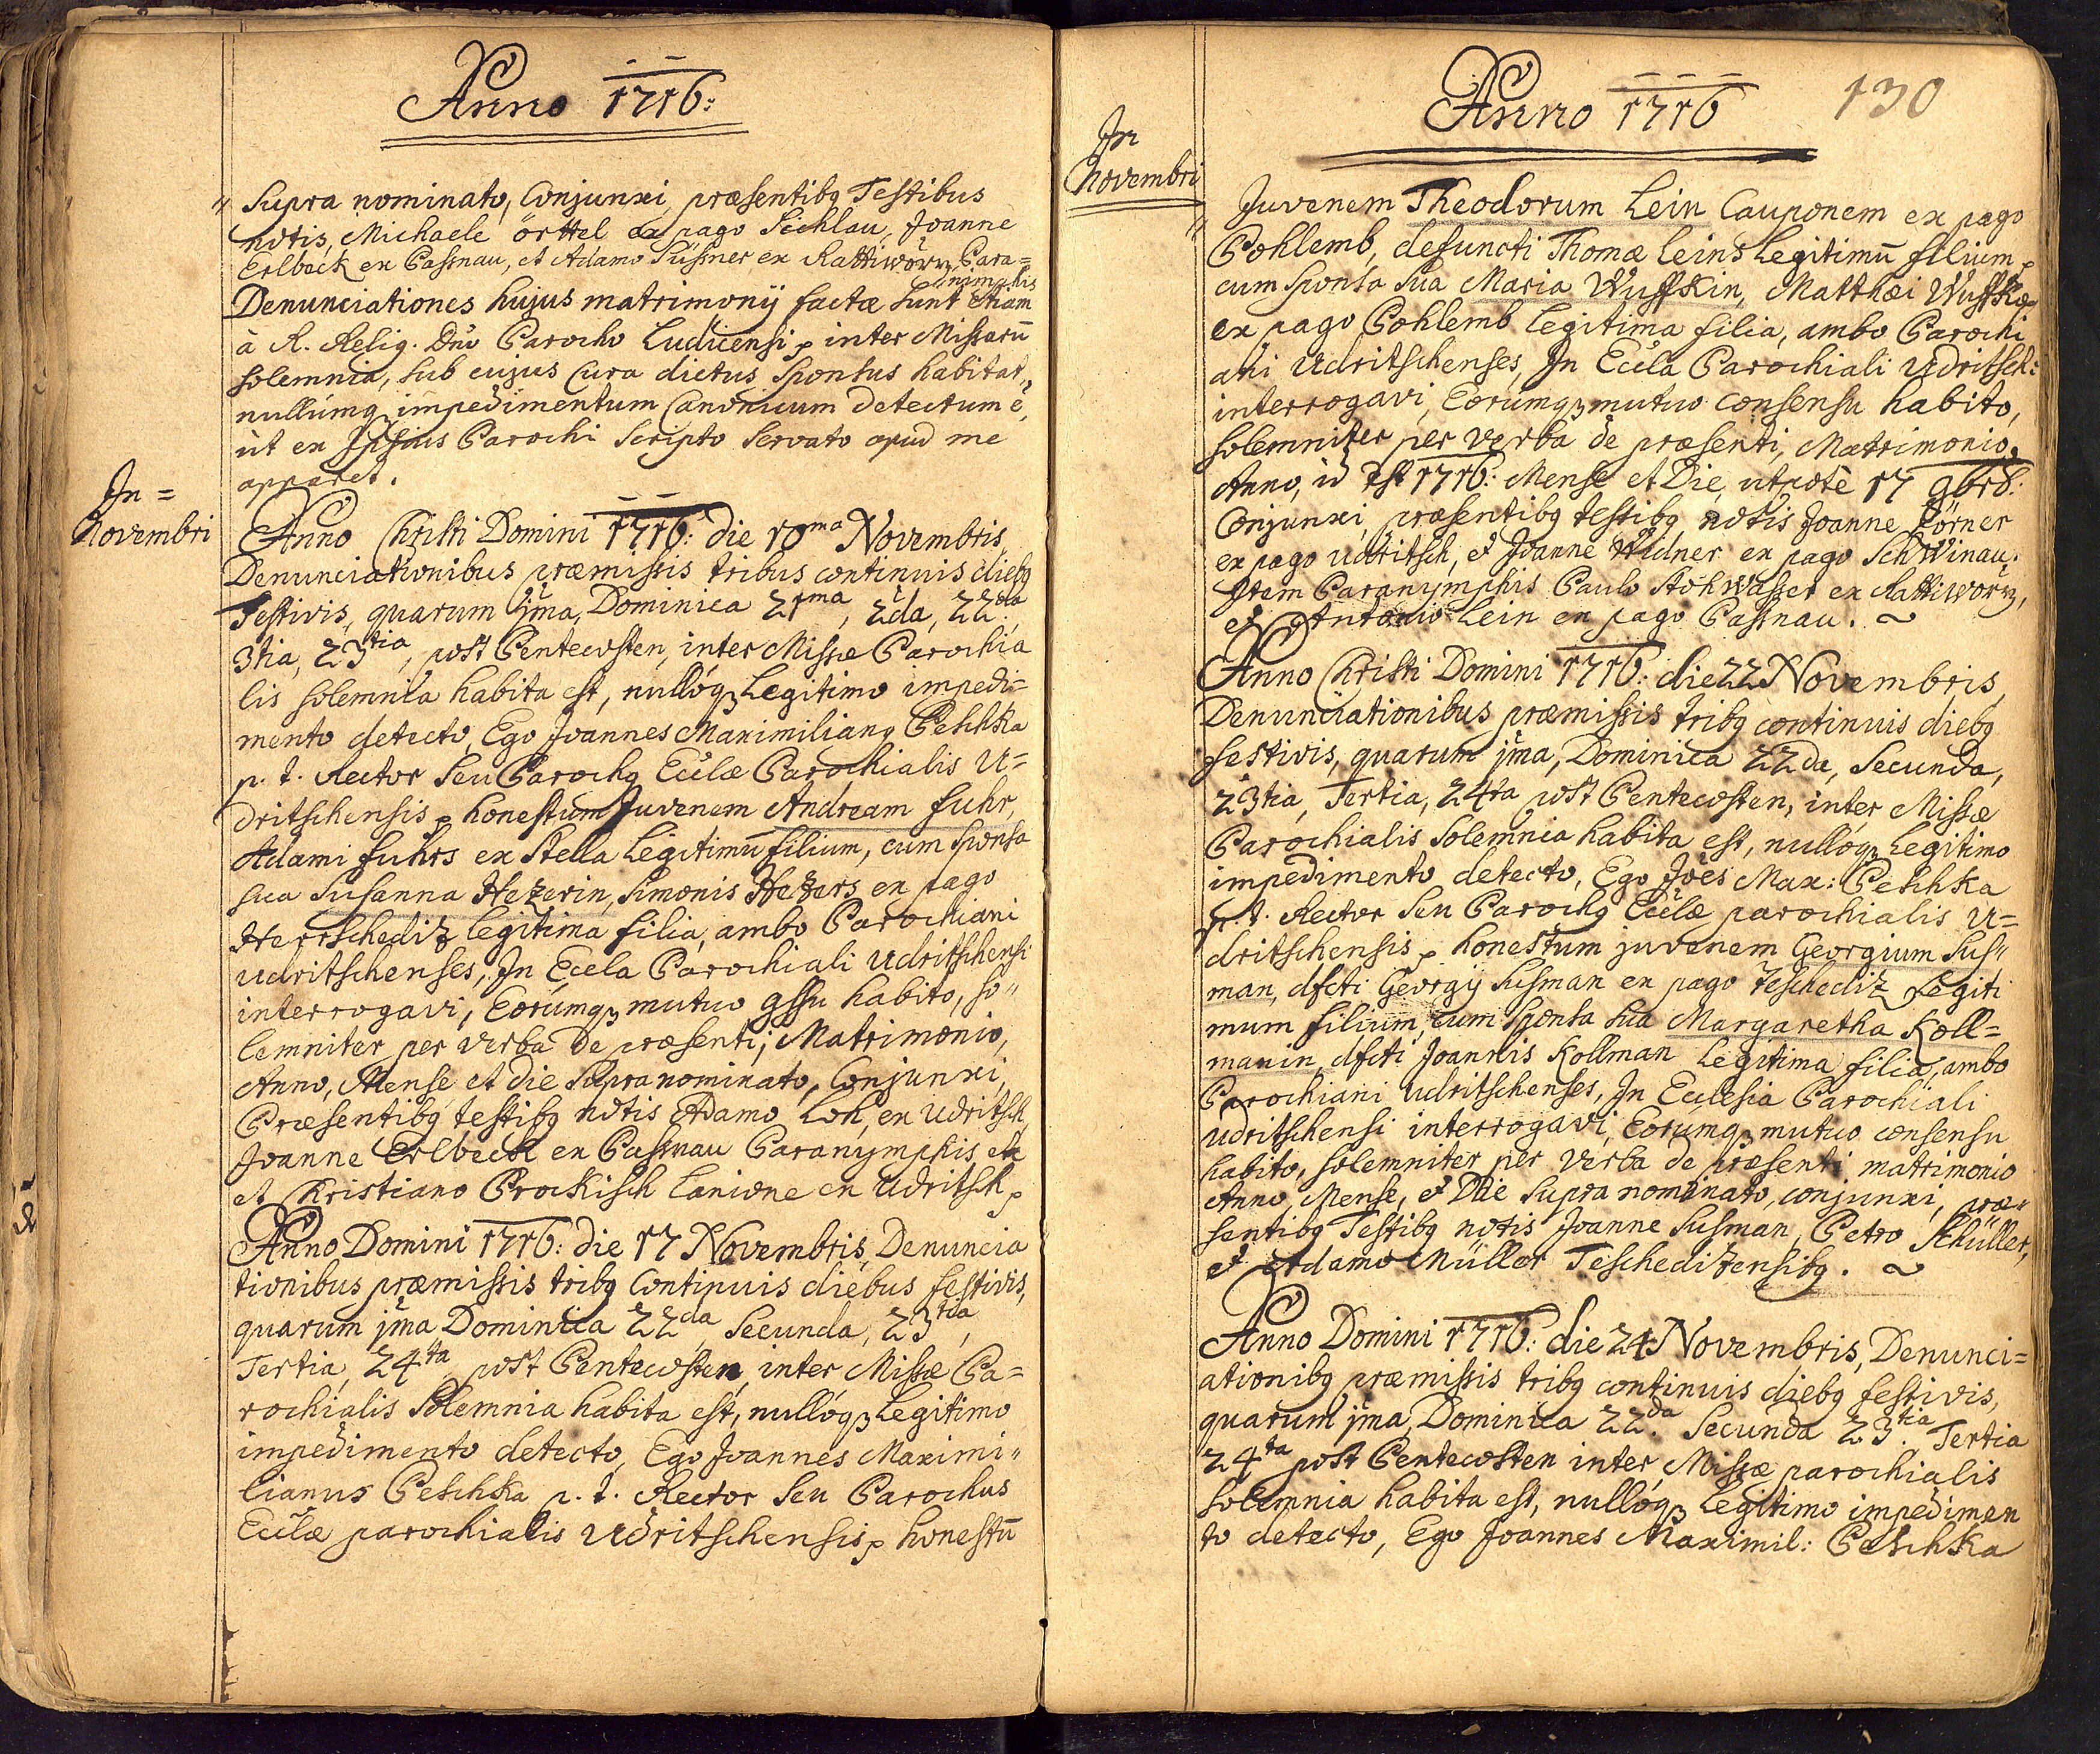 Anno 1716:
Supra nominato, Conjunxi, præsentibq Testibus
notis, Michaele örttel ex pago Sichlau, Joanne
Erlbeck ex Passnau, et Adamo Süssner ex Rattiworz, Para=
nimphis
Denunciationes hujus matrimonij factæ sunt etiam
à R. Relig. Dno Parocho Ludicensi, inter Missarū
solemnia, sub cujus Cura dictus Sponsus habitat,
nullúmq impedimentum Canonicum detectum ẽ,
ùt ex Ipsius Parochi Scripto Servato apud me
apparet.
In =
Novembri
Anno Christi Domini 1716: die 10ma Novembris
Denunciationibus præmissis tribus continuis diebq
Festivis, quarum jma, Dominica 21ma, 2da, 22da
3tia, 23tia, post Pentecosten, inter Missæ Parochia
lis solemnia habita est, nullóq Legitimo impedi=
mento detecto, Ego Joannes Maximilianq Peschka
p. t. Rector Seu Parochq Eccłæ Parochialis U=
dritschensis, honestum Juvenem Andream Fuhr,
Adami Fuhrs ex Stella Legitimū filium, cum Sponsa
sua Susanna Hezerin, Simonis Hezers ex pago
Herrschediz Legitima filia, ambo Parochiani
Udritschenses, In Eccła Parochiali Udritschensi
interrogavi, Eorúmq mutuo gssu habito, so"
lemniter per verba de præsenti, Matrimonio,
Anno, Mense et die Supra nominato, Conjunxi,
Præsentibq testibq notis Adamo Loh, ex Udritsch,
Joanne Erlbeck ex Passnau Paranymphis etc
et Christiano Prockisch Lanione ex Udritsch,
Anno Domini 1716: die 17 Novembris, Denuncia
tionibus præmissis tribq Continuis diebus festivis,
quarum jma Dominica 22da, Secunda, 23tia,
Tertia, 24ta, post Pentecosten, inter Missæ Pa=
rochialis Solemnia habita est, nullóq Legitimo
impedimento detecto, Ego Joannes Maximi"
lianus Peschka p. t. Rector Seu Parochus
Eccłæ parochialis Udritschensis, honestū
Anno 1716
130
In
Novembri
Juvenem Theodorum Lein Cauponem ex pago
Pohlemb, defuncti Thomæ Leins Legitimū filium,
cum Sponsa Sua Maria Wuffkin, Matthæi Wuffks
ex pago Pohlemb Legitima filia, ambo Parochi
ani Udritschenses, In Eccła Parochiali Udritsch:
interrogavi, Eorúmq mutuo consensu habito,
solemniter per verba de præsenti, Matrimonio,
Anno, id est 1716: Mense et Die, utpote 17 9bris:
Conjunxi, præsentibq testibq notis Joanne Körner
ex pago Udritsch, et Joanne Widner ex pago Schwinau;
Item Paranymphis Paulo Rohwasser ex Rattiworz,
et Antonio Lein ex pago Passnau.
Anno Christi Domini 1716: die 22 Novembris,
Denunciationibus præmissis tribq continuis diebq
festivis, quarum jma, Dominica 22da, Secunda,
23tia, Tertia, 24ta post Pentecosten, inter Missæ
Parochialis Solemnia habita est, nullóq Legitimo
impedimento detecto, Ego Joẽs Max: Peschka
p. t. Rector Seu Parochq Eccłæ parochialis U=
dritschensis, honestum juvenem Georgium Sus"
man, dfcti Georgij Susman ex pago Teschediz Legiti
mum filium, cum Sponsa sua Margaretha Koll=
manin, dfcti Joannis Kollman Legitima filia, ambo
Parochiani Udritschenses, In Ecclesia Parochiali
Udritschensi interrogavi, Eorúmq mutuo consensu
habito, solemniter per verba de præsenti matrimonio
Anno, Mense, et Die Supra nominato, conjunxi, præ"
sentibq Testibq notis Joanne Susman, Petro Schüller,
et Adamo Müller Teschedizensibq.
Anno Domini 1716: die 24 Novembris, Denunci=
ationibq præmissis tribq continuis diebq festivis,
quarum jma, Dominica 22da. Secunda 23tia. Tertia
24ta post Pentecosten inter Missæ parochialis
solemnia habita est, nullóq Legitimo impedimen
to detecto, Ego Joannes Maximil: Peschka